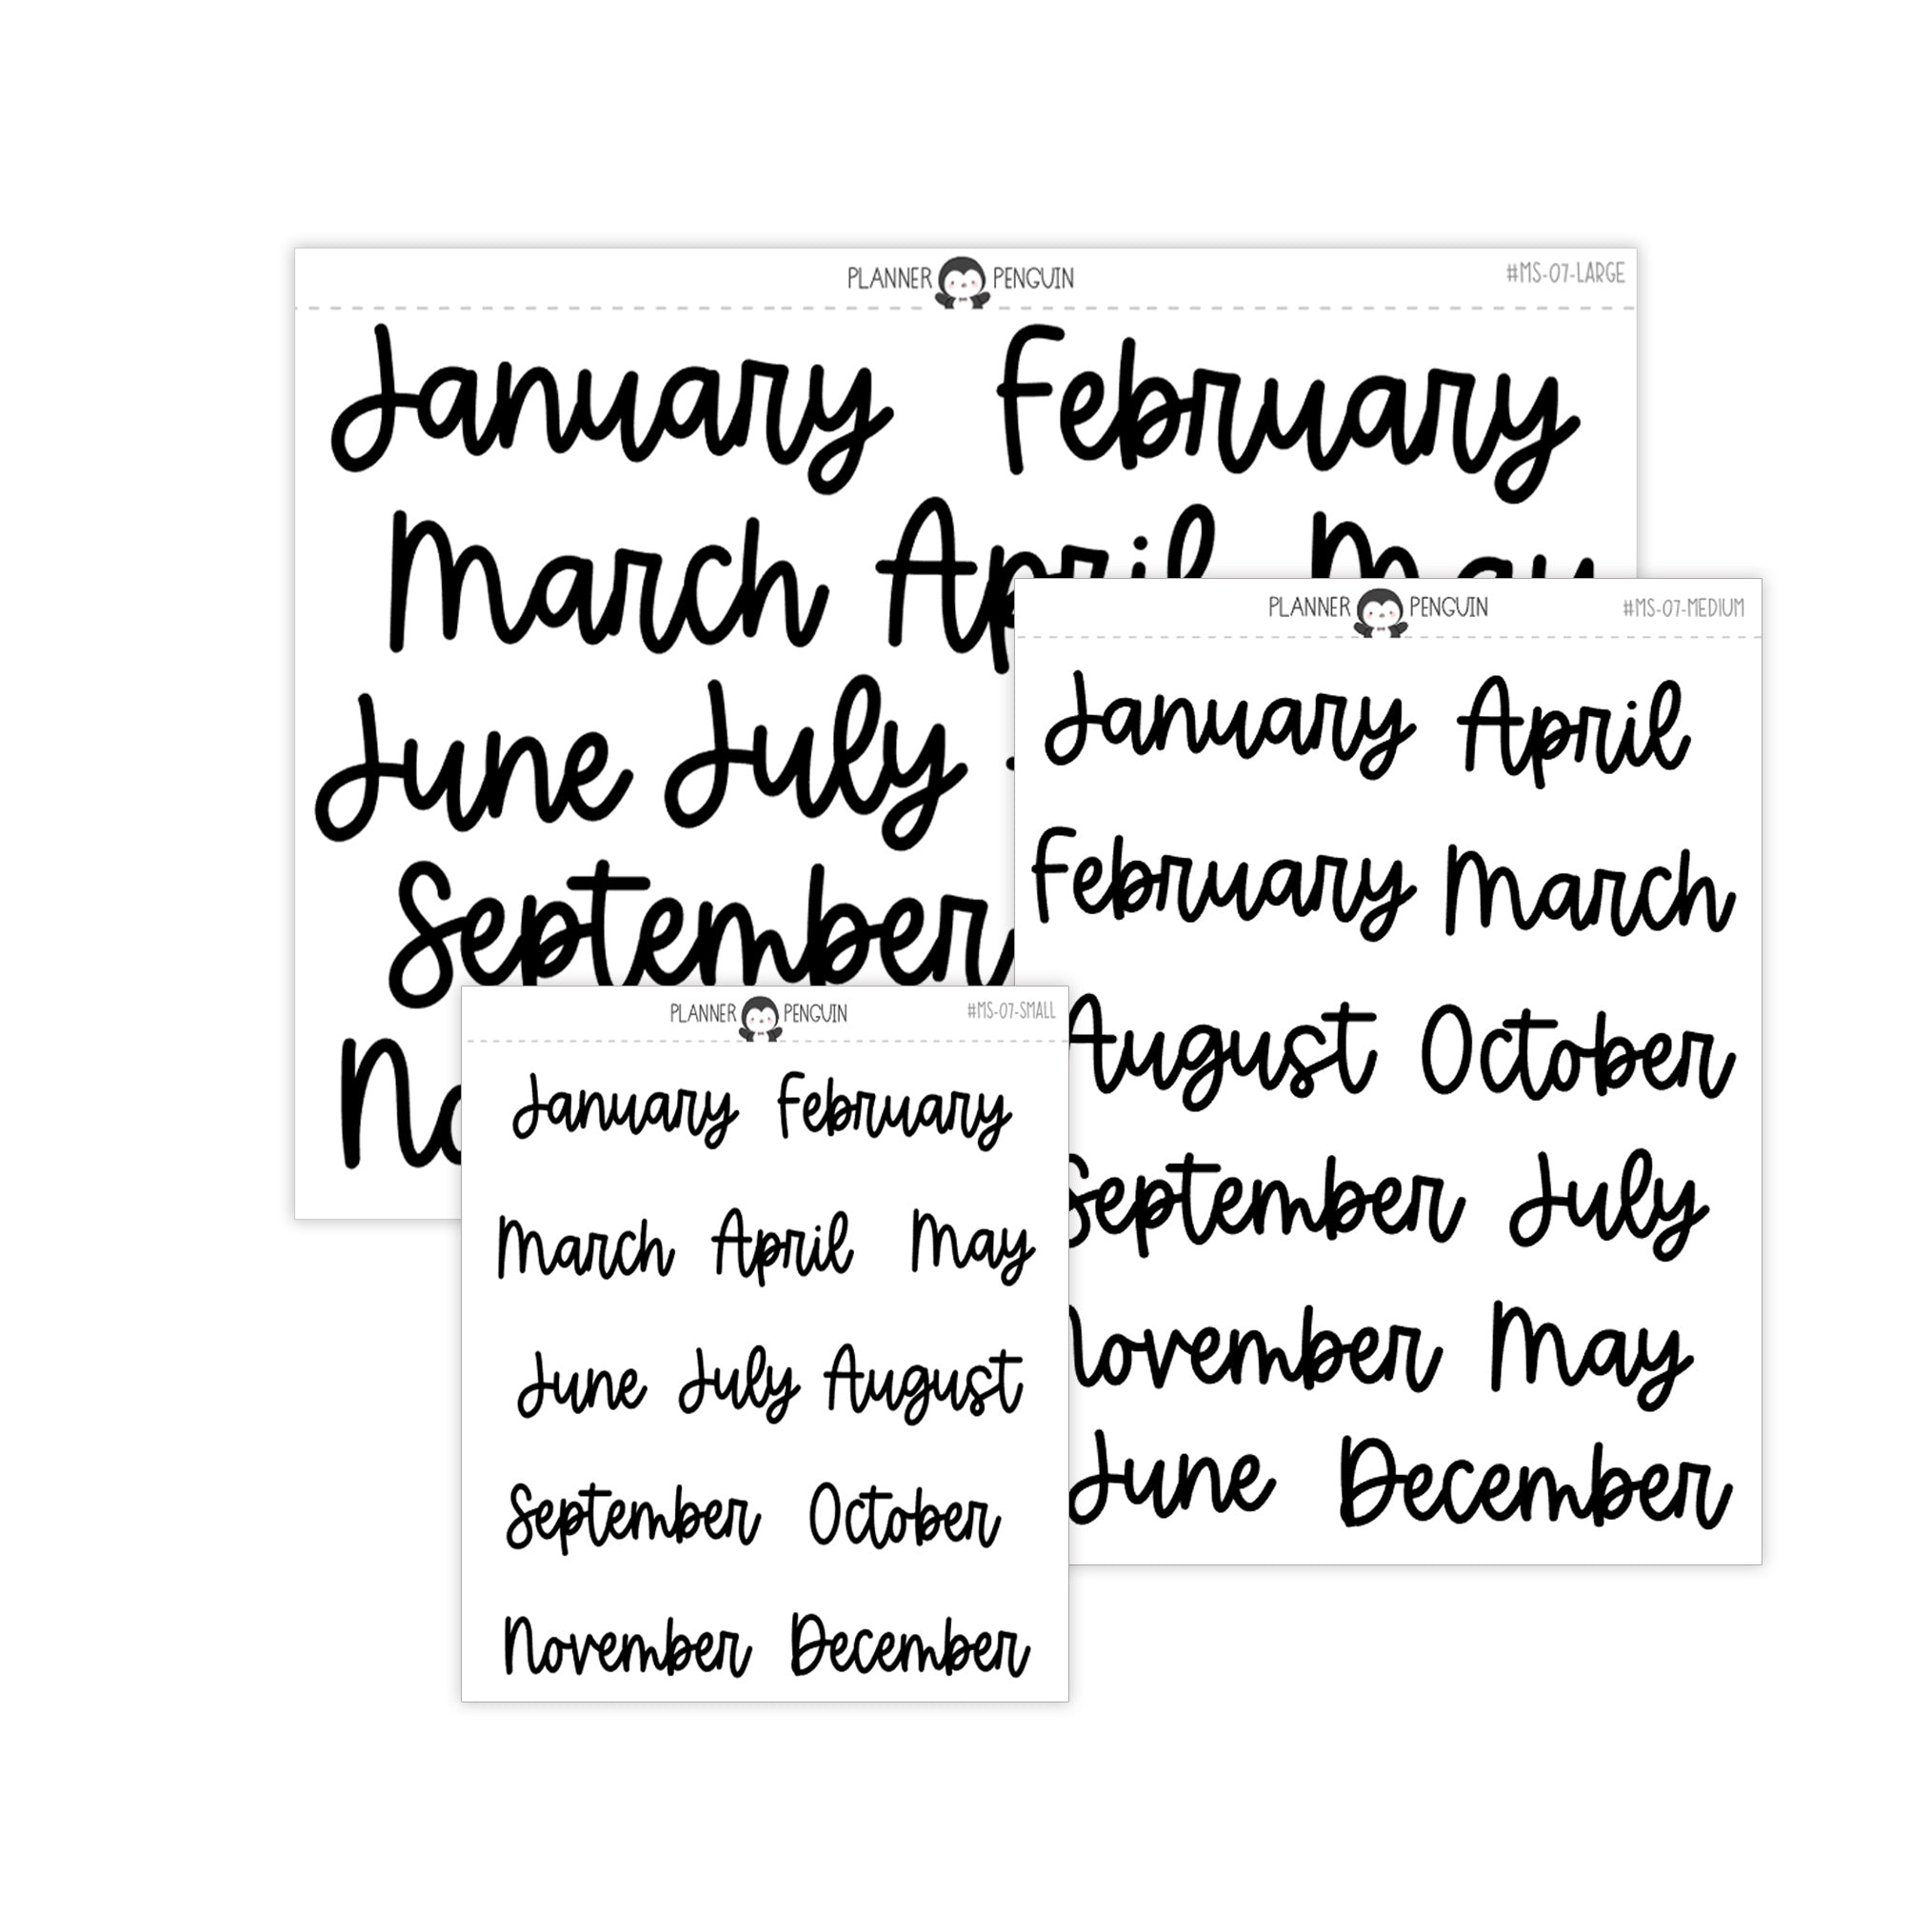 PLANNER PENGUIN #MS-07-LARGE
January February
March April May
June July
September
PLANNER PENGUIN #MS-07-MEDIUM
January April
February March
August October
September July
November May
June December
PLANNER PENGUIN #MS-07-SMALL
January February
March April May
June July August
September October
November December